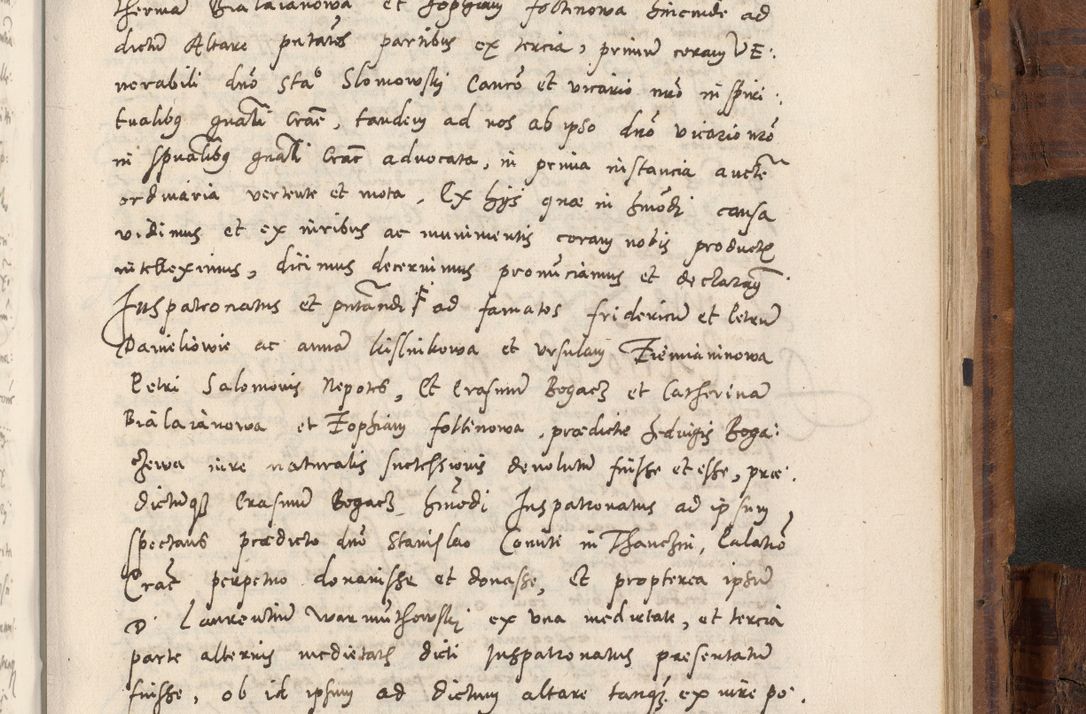 therinam Bialaianowa et Zophiam foltinowa hincinde ad
dictū Altare pñtatōs partibus ex tercia, primum coram VE:
nerabili dnō Stāo Slomowskj Cancō et vicario nrō in spiri:
tualibq gnāli Crāc, tandem ad nos ab ipso dnō vicario nrō
in spūalibq gnāli Crāc advocata, in prima instancia auctē
ordinaria vertente et mota, Ex hijs quæ in hmōdi causa
vidimus et ex iuribus ac munimentis coram nobis productis
intelleximus, dicimus decernimus pronūciamus et declaram9
Juspatronatus et pñtandi ad famatos fridericū et Petrum
Danieliowie ac annam Kislnikowa et Vrsulam Ziemianinowa
Petri Salomonis Nepotes, Et Erasmum Begacz et Catherinam
Bialaianowa et Zophiam foltinowa, prædictæ Hedvigis Bega:
czewa iure naturalis successionis devolutum fuisse et esse, præ:
dictumq3 Erasmum Begacz hmōdi Juspatronatus ad ipsum
spectans prædicto dnō Stanislao Comite in Thanczin, Palatino
Crāc perpetuo donavisse et donasse, Et propterea ipsum
D. Laurentium Warmuthowskj ex vna medietate, et tercia
parte alterius medietatis dicti Juspatronatus presentatum
fuisse, ob id ipsum ad dictum altare tanq3 ex iure po: